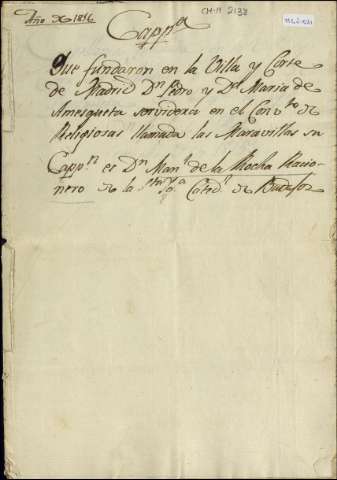 Año de 1816
CM-M 2138
Cappª
Que fundaron en la Villa y Corte
de Madrid Dn Pedro y Dª Maria de
Amesqueta servidera en el Convto de
Religiosas llamada las Maravillas su
Cappn es Dn Manl de la Rocha Racio-
nero de la Sta Catedl de